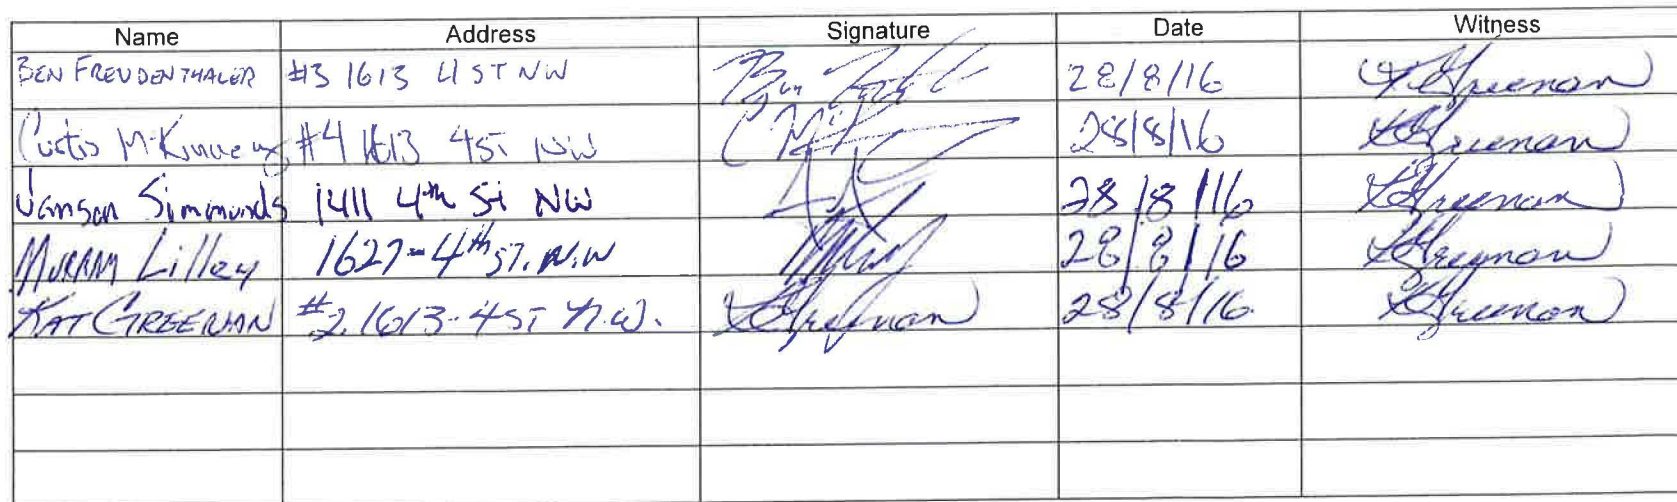 Name Address Signature Date Witness
BEN FREUDENTHALER #3 1613 4 ST NW Ben 28/8/16 K Greenan
Curtis #4 1613 4 ST NW 28/8/16 K Greenan
Simmonds 1411 4th St NW 28/8/16 K Greenan
Murray Lilley 1627-4th ST. N.W 28/8/16 K Greenan
KAT GREENAN #2 1613-4 ST N.W. K Greenan 28/8/16 K Greenan